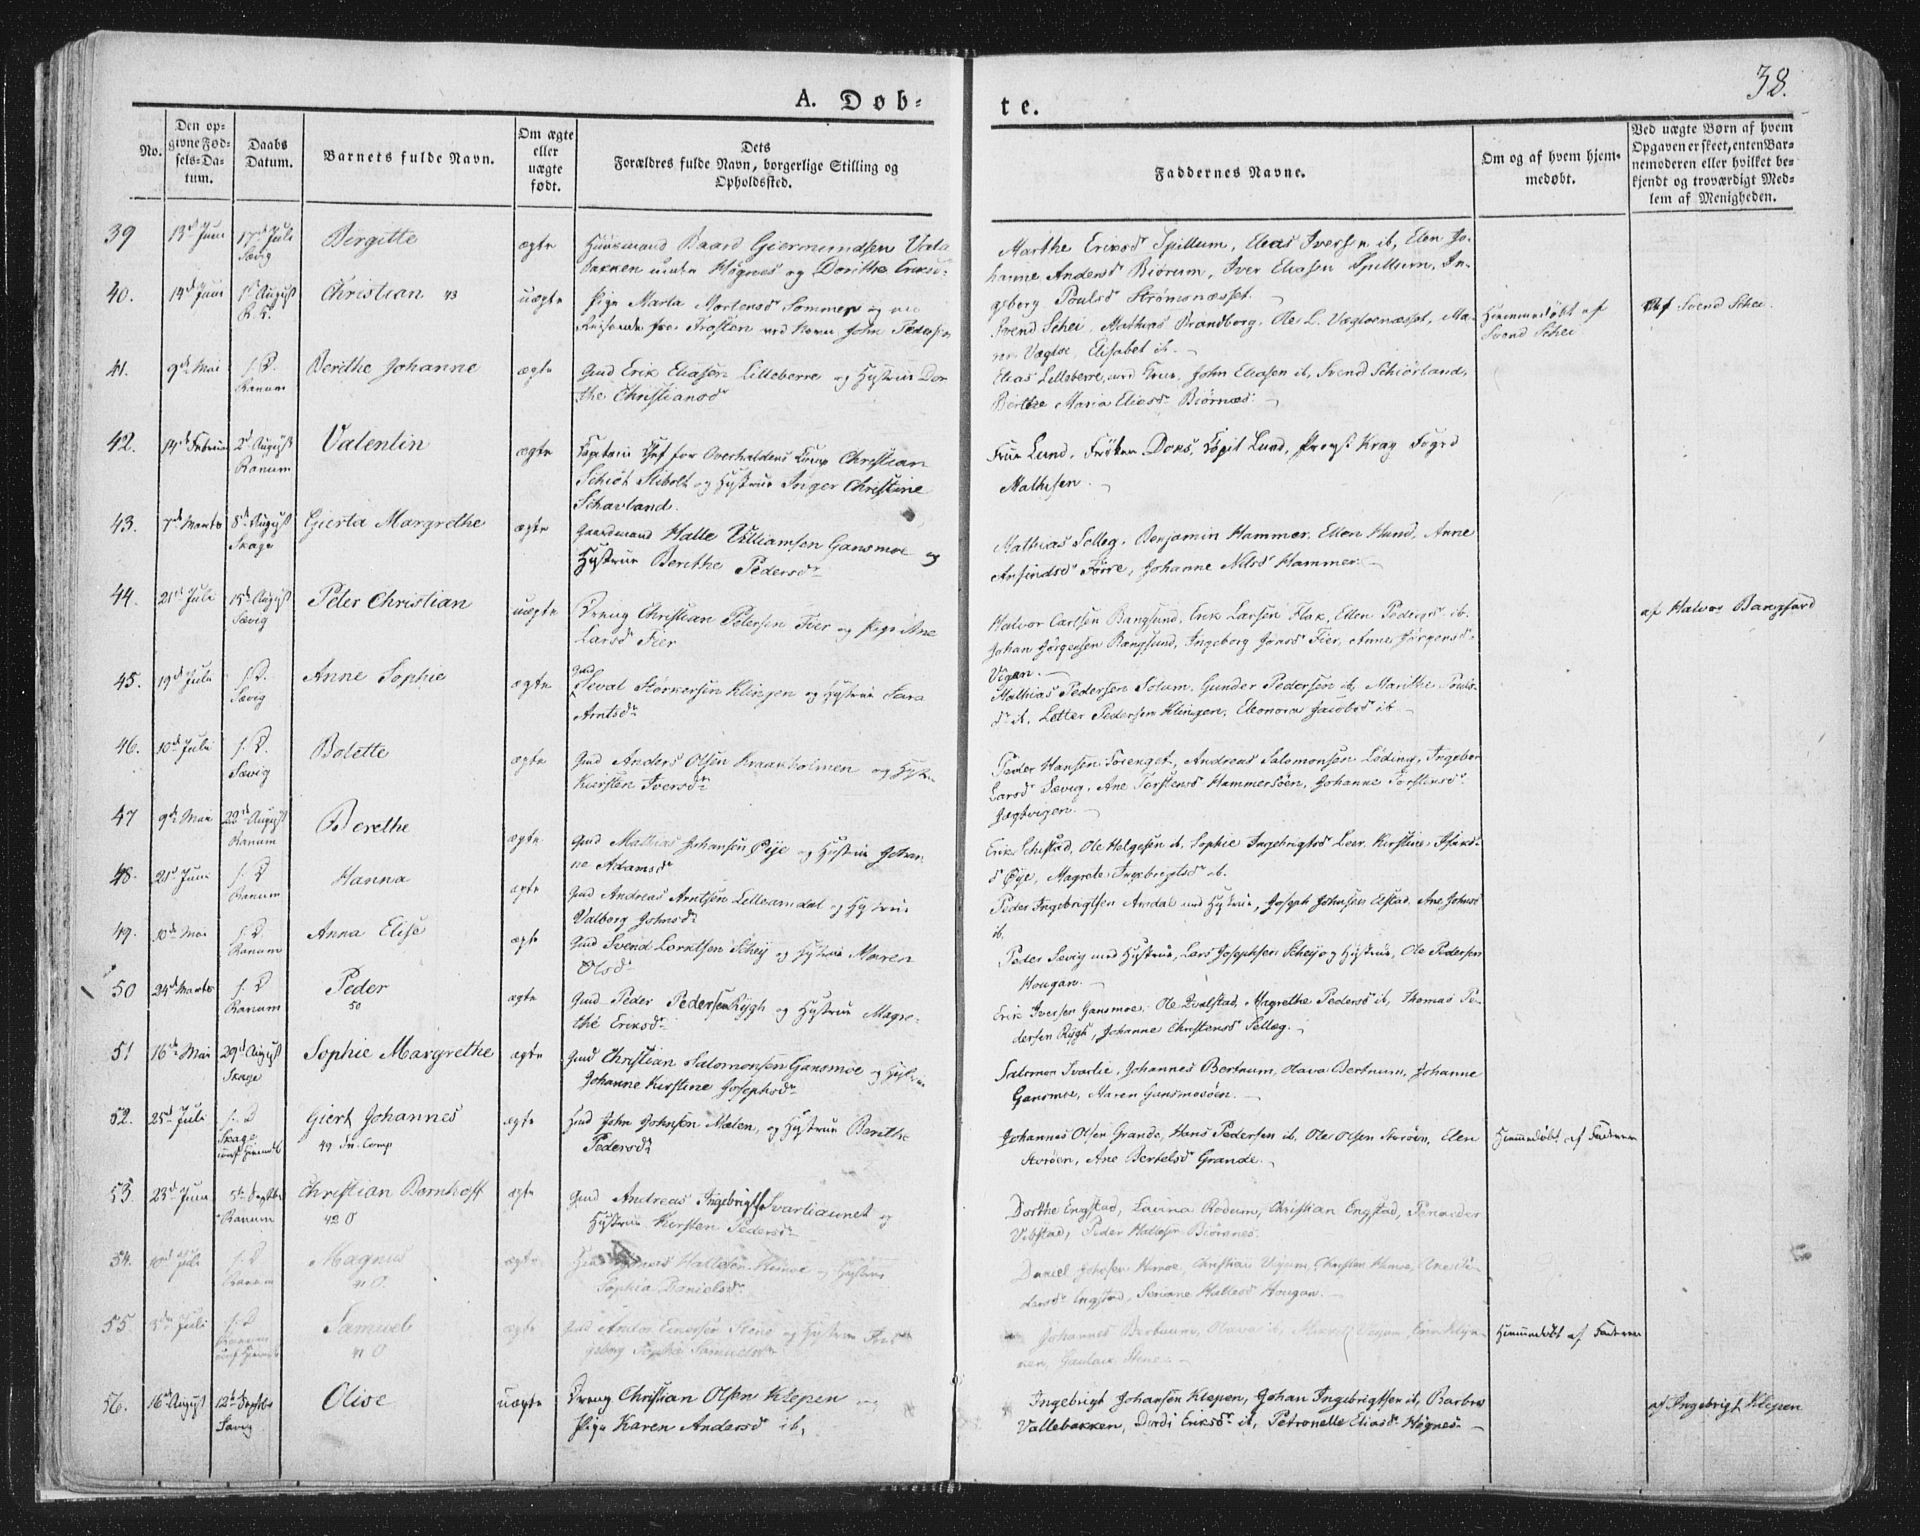 38.
A. Døb-
te.
No.
Den op-
givne Fød-
sels-Da-
tum.
Daabs
Datum.
Barnets fulde Navn.
Om ægte
eller
uægte
født.
Dets
Forældres fulde Navn, borgerlige Stilling og
Opholdssted.
Faddernes Navne.
Om og af hvem hjem-
medøbt.
Ved uægte Børn af hvem
Opgaven er skeet, enten Bar-
nemoderen eller hvilket be-
kjendt og troværdigt Med-
lem af Menigheden.
39 13d Juni 17d Juli Bergitte ægte Huusmand Baard Giermundsen
Sævig bakken under Høgnes og Dorithe Eriksd
Marthe Eriksd Spillum, Elias Iversen ib, Elen Jo-
hanne Andersd Biørum, Iver Eliasen Spillum, In-
geborg Poulsd Strømsnæsset.
40. 14d Juni 1d August Christian uægte Pige Marta Mortensd Sommer og en
Reisende fra Frosten ved Navn John Pedersen
Svend Schei, Mathias Brandborg, Ole L. Vægtoenæsset, Ma-
ren Vægtoe, Elisabet ib.
Hiemmedøbt af
Svend Schei
af Svend Schei.
41. 9d Mai f. D. Berithe Johanne ægte Gmd Erik Eliasen Lilleberre og Hystrue Dor-
Ranum the Christiansd
Elias Lilleberre med Frue, John Eliasen ib, Svend Schiørland,
Berthe Maria Eliasd Biørnæs.
42. 14d Februar 2d August Valentin ægte Kaptain Chef for Overhaldens Komp Christian
Ranum Schiøt Stibolt og Hystrue Inger Christine
Schavland.
Frue Lund, Frøken Dons, Lund, Provst Krag Foged
Mathesen.
43. 7d Marts 8d August Gierta Margrethe ægte Gaardmand Halle Villiamsen Gansmoe og
Skage Hystrue Berithe Pedersd
Mathias Selleg, Benjamin Hammer, Ellen Hund, Anne
Arsindsd Førre, Johanne Nilsd Hammer.
44. 21d Juli 15d August Peter Christian uægte Dreng Christian Petersen Fier og Pige Ane
Sævig Larsd Fier
Halvor Carlsen Bangsund, Erik Larsen Flak, Ellen Pedersd ib.
Johan Jørgensen Bangsund, Ingeborg Jonsd Fier, Anne Jørgensd
Vigen.
af Halvor Bangsund
45. 19d Juli f. D. Anne Sophie ægte Gmd
Sævig Seval Størkersen Klingen og Hystrue Sara
Arntsd
Mathias Pedersen Solum, Gunder Pedersen ib, Marithe Pouls-
d ib. Letter Pedersen Klingen, Eleonora Jacobsd ib
46. 10d Juli f. D. Bolette ægte Gmd Anders Olsen Kraakholmen og Hystrue
Sævig Kiersten Iversd
Peder Hansen Sørenget, Andreas Salomonsen Løding, Ingebor
Larsd Sævig, Ane Torstensd Hammersøen, Johanne Torstensd
Jægtvigen.
47 9d Mai 22d August Berethe ægte Gmd Mathias Johansen Øye og Hystrue Johan-
Ranum ne Adamsd
Erik Ole Helgesen ib. Sophie Ingebrigtsd Leer. Kirstine
d Øye, Magrete Ingebrigtsd ib.
48. 21d Juni f. D Hanna ægte Gmd Andreas Arntsen Lilleamdal og Hystrue
Ranum Valborg Johnsd
Peder Ingebrigtsen Amdal med Hystrue, Joseph Johnsen Elstad, Ane Johnsd
ib.
49. 10d Mai f. D Anna Elise ægte Gmd Svend Lorntsen Scheij og Hystrue Maren
Ranum Olsd
Peder Sevig med Hystrue, Lars Josephsen Scheij og Hystrue, Ole Pedersen
Hougan.
50 24d Marts f. D Peder ægte Gmd Peder Pedersen Rygh og Hystrue Magre-
Ranum 50 the Eriksd
Erik Iversen Gansmoe, Ole Qvalstad, Magrethe Pedersd ib, Thomas Pe-
dersen Rygh, Johanne Christensd Selleg.
51 16d Mai 29d August Sophie Margrethe ægte Gmd Christian Salomonsen Gansmoe og Hystrue
Skage Johanne Kirstine Josephsd
Salomon Svarlie, Johannes Bertnum, Olava Bertnum, Johanne
Gansmoe, Maren Gansmosøen.
52. 25d Juli f. D Giert Johannes ægte Gmd John Johnsen Mælen, og Hystrue Berithe
Skage 49 Comp Pedersd
Johannes Olsen Grande, Hans Pedersen ib, Ole Olsen Storøen, Elen
Storøen, Ane Bertelsd Grande.
Hiemmedøbt af Faderen
53. 23d Juni 5d Septbr Christian Bernhoft ægte Gmd Andreas Ingebrigts Svarliaunet og
Ranum 42 0 Hystrue Kirsten Pedersd
Dorthe Engstad, Lavina Rodum, Christian Engstad,
Vibstad, Peder Hallesen Biørnnes.
54. Juli f. D Magnus ægte Hallesen Himoe og Hystrue
Ranum Sophia Danielsd
Daniel Himoe, Christian Vigum, Christen Himoe, Ane Pe-
dersd Engstad, Seriane Hallesd Hougan.
55. 5d Juli f. D Samuel ægte Gmd Andor Einersen Stene og Hystrue
Ranum Sophie Samuelsd
Johannes Bertnum, Olava ib,
Stene
Hiemmedøbt af Faderen
56. 16d August 12d Septbr Olive uægte Dreng Christian Olsen Klepen og
Sævig Pige Karen Andersd ib,
Ingebrigt Johansen Klepen, Johan Ingebrigtsen ib, Barbro
Vallebakken, Dordi Eriksd ib, Petronelle Eliasd Høgnes
af Ingebrigt Klepen